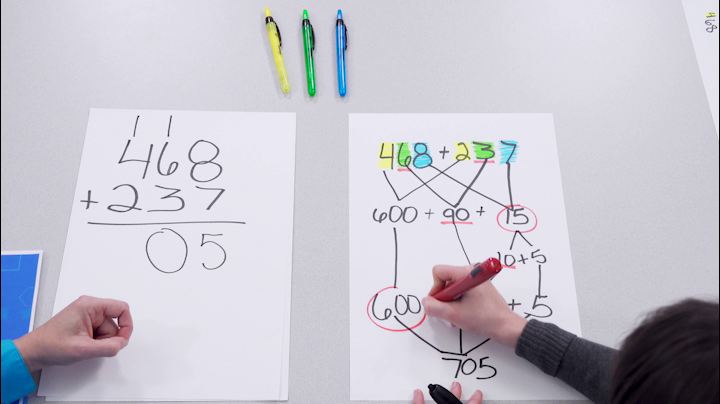 1 1
468
+ 237
05
468 + 237
600 + 90 + 15
10 + 5
600 + 5
705
468